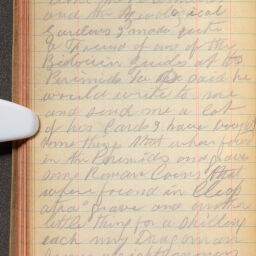 and the Zoological
Gardens I made quite
a Friend of one of the
Bedouin Guides at the
Piramids he said he
would write to me
and send me a lot
of his Cards I have bought
some things that where found
in the Piramids and gave
some Roman Coins that
where found in Cleop
atra grave and another
little thing for a shilling
each my Dragoman